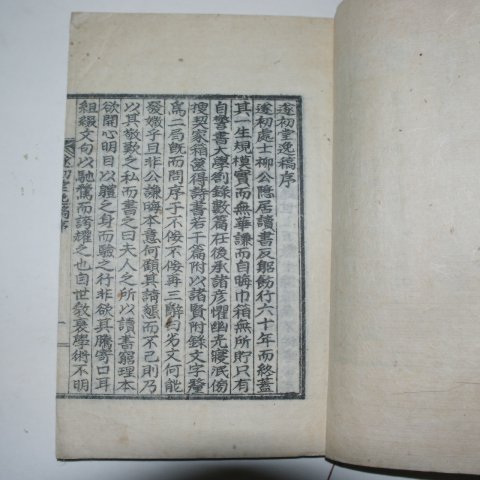 遂初堂逸稿序
遂初處士柳公隱居讀書反躬飭行六十年而終蓋
其一生規模實而無華謙而自晦巾箱無所貯只有
自警書大學劄錄數篇在後承諸彦懼幽光寢泯傍
搜契家箱篋得詩書若干篇附以諸賢附錄文字釐
爲二局旣而問序于不佞不佞再三辭曰劣文何能
發嫩乎且非公謙晦本意何顧其請愈而不已則乃
以其敬歎之私而書之曰夫人之所以讀書窮理本
欲開心明目以軆之身而驗之行非欲其騰寄口耳
組綴文句以馳騖而誇耀之也自世敎衰學術不明
遂初堂逸稿序
一